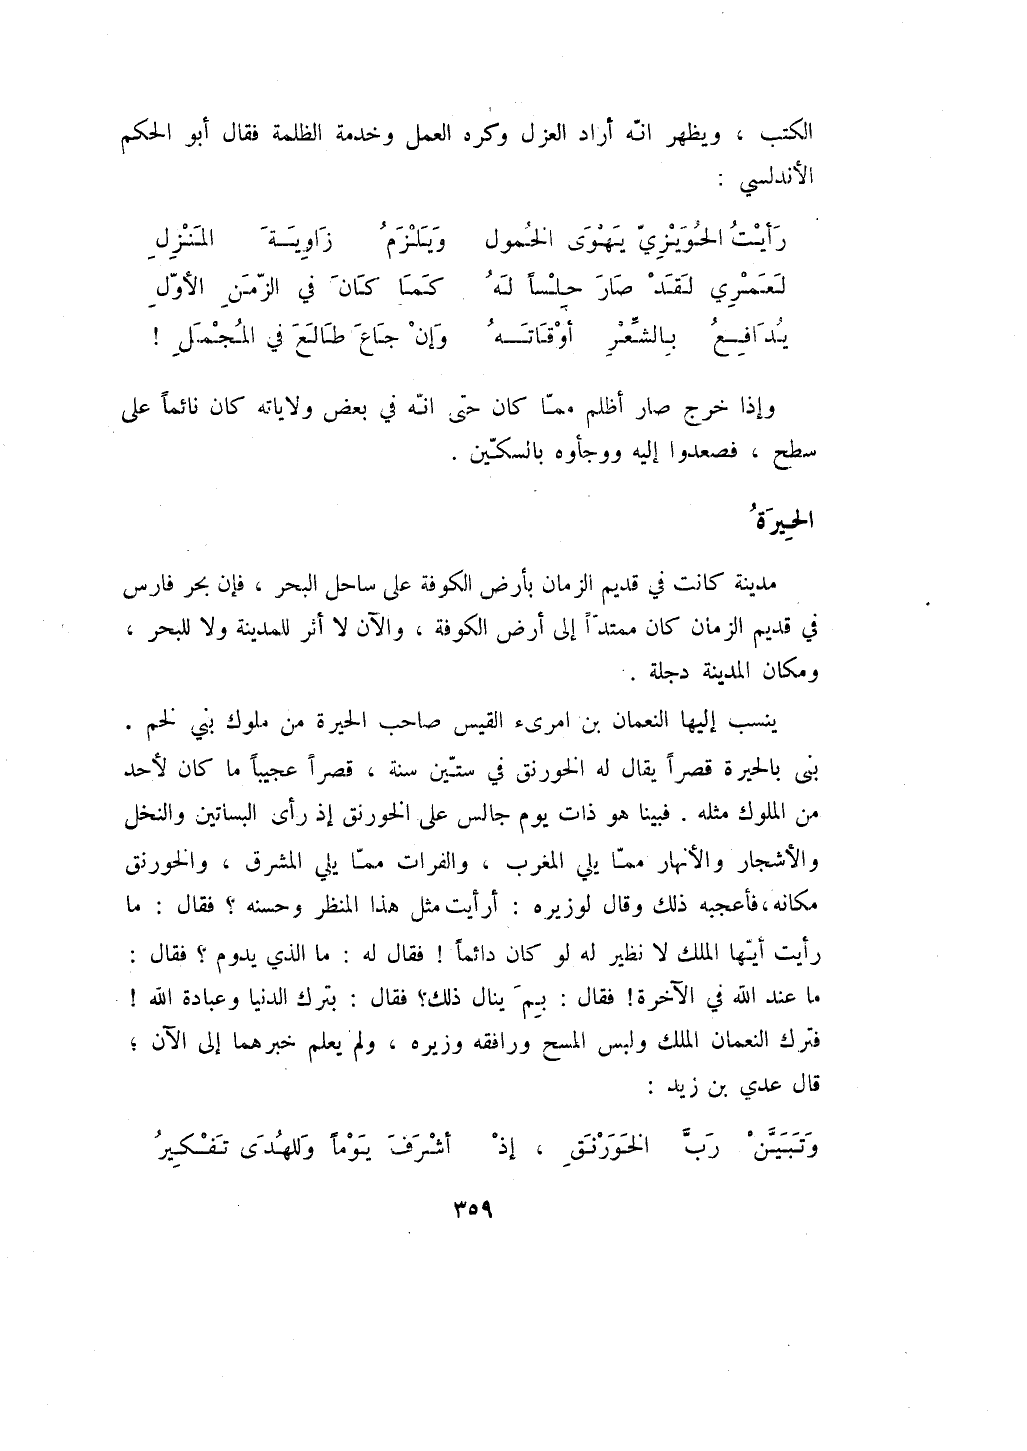 الكتب ، ويظهر انّه أراد العزل وكره العمل وخدمة الظلمة فقال أبو الحكم
الأندلسي :
رَأيْتُ الحُوَيْزِيّ يَهْوَى الخُمول وَيَلْزَمُ زَاوِيَةَ المَنْزِلِ
لَعَمْرِي لَقَدْ صَارَ حِلْساً لَهُ كَمَا كَانَ في الزّمَنِ الأوّلِ
يُدَافِعُ بِالشّعْرِ أوْقَاتَهُ وَإنْ جَاعَ طَالَعَ في المُجْمَلِ !
وإذا خرج صار أظلم ممّا كان حتى انّه في بعض ولاياته كان نائماً على
سطح ، فصعدوا إليه ووجأوه بالسكّين .
الحِيرَةُ
مدينة كانت في قديم الزمان بأرض الكوفة على ساحل البحر ، فإن بحر فارس
في قديم الزمان كان ممتدّاً إلى أرض الكوفة ، والآن لا أثر للمدينة ولا للبحر ،
ومكان المدينة دجلة .
ينسب إليها النعمان بن امرىء القيس صاحب الحيرة من ملوك بني لخم .
بنى بالحيرة قصراً يقال له الخورنق في ستّين سنة ، قصراً عجيباً ما كان لأحد
من الملوك مثله . فبينا هو ذات يوم جالس على الخورنق إذ رأى البساتين والنخل
والأشجار والأنهار ممّا يلي المغرب ، والفرات ممّا يلي المشرق ، والخورنق
مكانه، فأعجبه ذلك وقال لوزيره : أرأيت مثل هذا المنظر وحسنه ؟ فقال : ما
رأيت أيّها الملك لا نظير له لو كان دائماً ! فقال له : ما الذي يدوم ؟ فقال :
ما عند الله في الآخرة! فقال : بِمَ ينال ذلك؟ فقال : بترك الدنيا وعبادة الله !
فترك النعمان الملك ولبس المسح ورافقه وزيره ، ولم يعلم خبرهما إلى الآن ؛
قال عدي بن زيد :
وَتَبَيَّنْ رَبَّ الخَوَرْنَقِ ، إذْ أشْرَفَ يَوْماً وَللهُدَى تَفْكِيرُ
٣٥٩